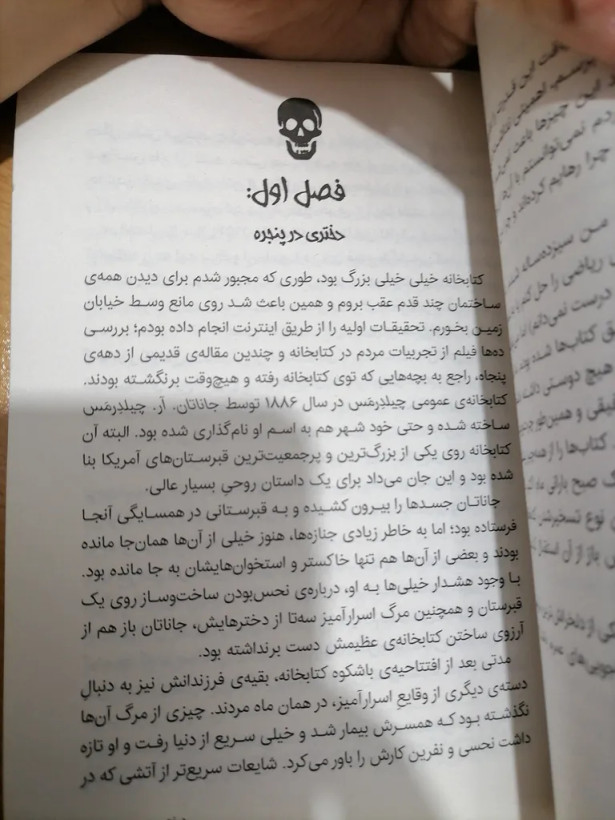 فصل اول:
دختری در پنجره
کتابخانه خیلی خیلی بزرگ بود، طوری که مجبور شدم برای دیدن همه‌ی
ساختمان چند قدم عقب بروم و همین باعث شد روی مانع وسط خیابان
زمین بخورم. تحقیقات اولیه را از طریق اینترنت انجام داده بودم؛ بررسی
ده‌ها فیلم از تجربیات مردم در کتابخانه و چندین مقاله‌ی قدیمی از دهه‌ی
پنجاه، راجع به بچه‌هایی که توی کتابخانه رفته و هیچ‌وقت برنگشته بودند.
کتابخانه‌ی عمومی چیلدرمَس در سال ۱۸۸۶ توسط جاناتان. آر. چیلدِرمَس
ساخته شده و حتی خود شهر هم به اسم او نام‌گذاری شده بود. البته آن
کتابخانه روی یکی از بزرگ‌ترین و پرجمعیت‌ترین قبرستان‌های آمریکا بنا
شده بود و این جان می‌داد برای یک داستان روحیِ بسیار عالی.
جاناتان جسدها را بیرون کشیده و به قبرستانی در همسایگی آنجا
فرستاده بود؛ اما به خاطر زیادی جنازه‌ها، هنوز خیلی از آن‌ها همان‌جا مانده
بودند و بعضی از آن‌ها هم تنها خاکستر و استخوان‌هایشان به جا مانده بود.
با وجود هشدار خیلی‌ها به او، درباره‌ی نحس‌بودن ساخت‌وساز روی یک
قبرستان و همچنین مرگ اسرارآمیز سه‌تا از دخترهایش، جاناتان باز هم از
آرزوی ساختن کتابخانه‌ی عظیمش دست برنداشته بود.
مدتی بعد از افتتاحیه‌ی باشکوه کتابخانه، بقیه‌ی فرزندانش نیز به دنبالِ
دسته‌ی دیگری از وقایعِ اسرارآمیز، در همان ماه مردند. چیزی از مرگ آن‌ها
نگذشته بود که همسرش بیمار شد و خیلی سریع از دنیا رفت و او تازه
داشت نحسی و نفرین کارش را باور می‌کرد. شایعات سریع‌تر از آتشی که در